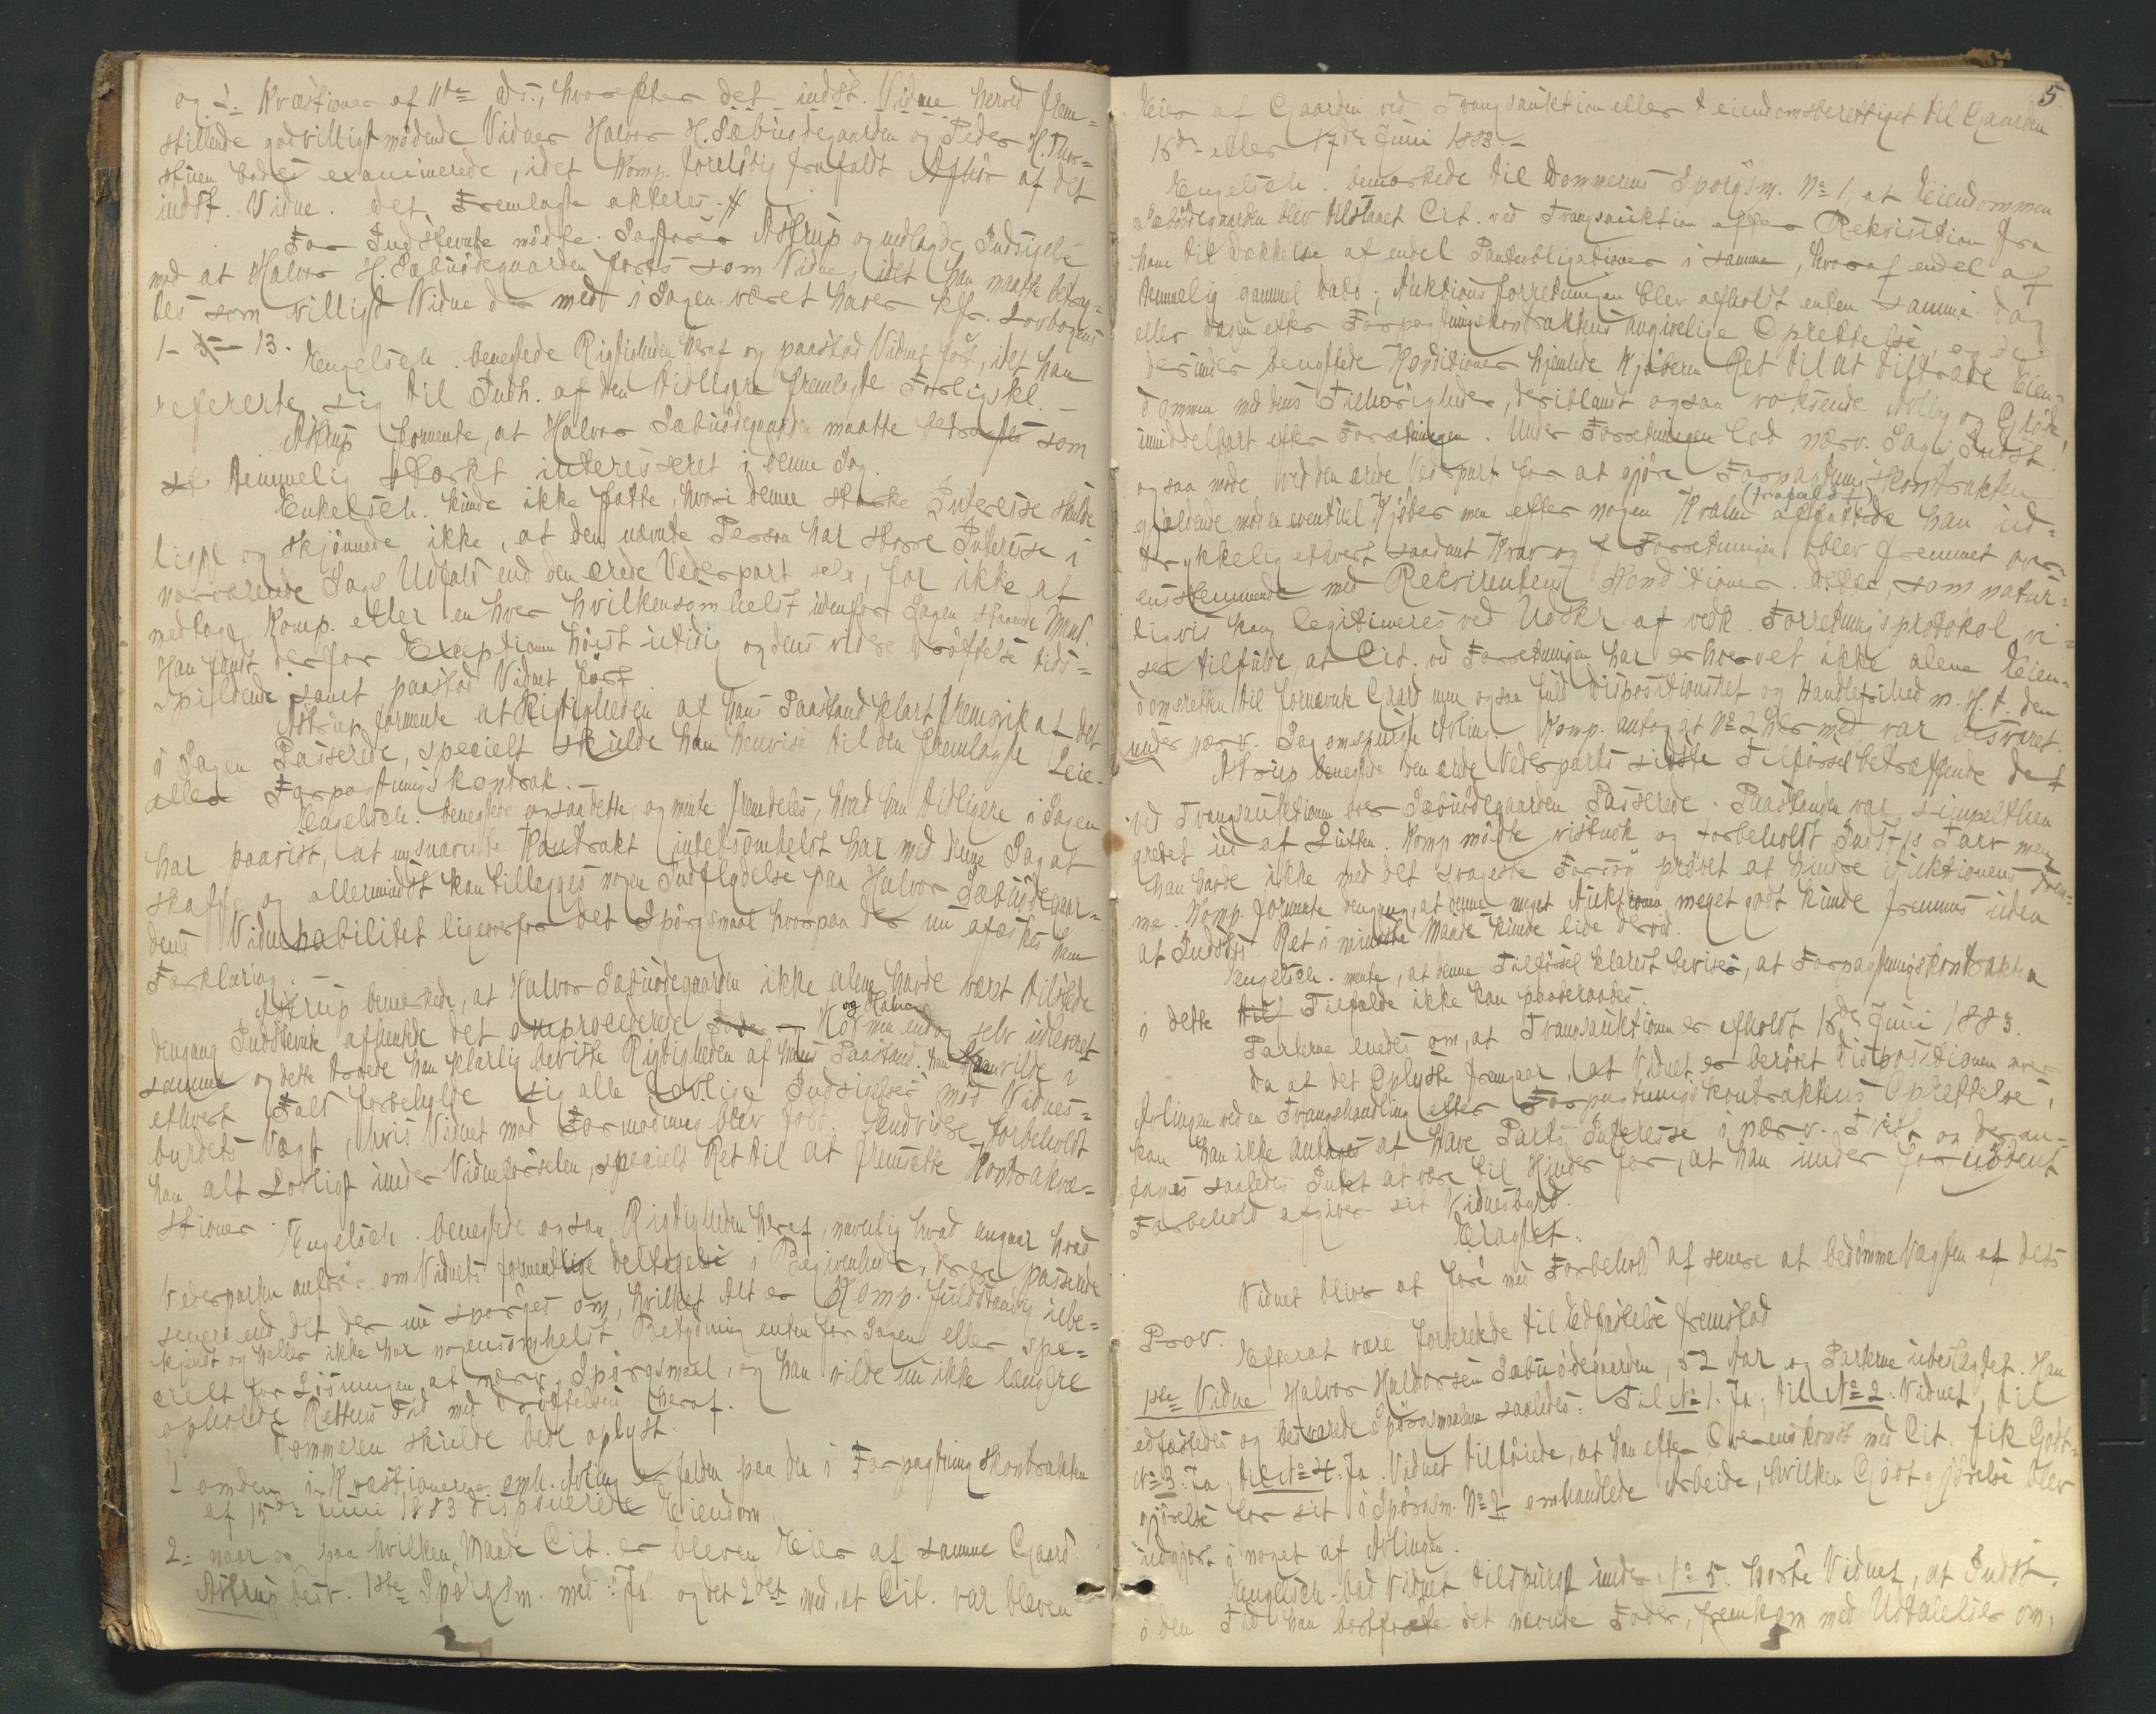 og 2. Kvæstioner af 11te ds., hvorefter det indst. Vidne herved frem=
stillende godvilligt mødende Vidner Halvor H. Sæbuødegaarden og Peder H. Thor=
stuen bedes examinerede, idet Komp. foreløbig frafaldt Afhør af det
indst. Vidne. Det Fremlagte akteres.
For Indstevnte mødte Sagfører Astrup og nedlagde Indsigelse
mod at Halvor H. Sæbuødegaarden førtes som Vidne, idet han maatte betrag=
tes som villigst Vidne der med i Sagen været haver kfr. Lovbogens
1-13.
Engelsch. benegtede Rigtigheden heraf og paastod Vidnet ført, idet han
refererte sig til Indh. af den tidligere fremlagte Forligskl.
Astrup formente, at Halvor Sæbuødegaarden maatte betragtes som
temmelig stærkt interesseret i denne Sag.
Enkelsch. kunde ikke fatte, hvori denne stærke Interesse skulde
ligge og skjønnede ikke, at den nævnte Person har større Interesse i
nærværende Sags Udfald end den ærede Vederpart selv, for ikke at
medtage Komp. eller en hver hvilkensomhelst udenfor Sagen staaende Mand.
Han fandt derfor Exceptionen høist utidig og dens videre Drøftelse tids=
spildende samt paastod Vidnet ført
Astrup formente at Rigtigheden af hans Paastand klart fremgik af det
i Sagen Passerede, specielt skulde han henvise til den fremlagte Leie-
eller Forpagtningskontrak.
Engelsch. benegtede ogsaa dette og mente fremdeles, hvad han tidligere i Sagen
har paavist, at nysnævnte Kontrakt intetsomhelst har med denne Sag at
skaffe og allermindst kan tillægges nogen Indflydelse paa Halvor Sæbuødegaar=
dens Vidnehabilitet ligeoverfor det Spørgsmaal hvorpaa der nu afæskes ham
Forklaring.
Astrup bemærkede, at Halvor Sæbuødegaarden ikke alene havde været tilstede
dengang Indstevnte afhentede det omprocederede Foder og Halm men endog selv udleveret
samme og dette troede han klarlig beviste Rigtigheden af hans Paastand. Han vilde i
ethvert Fald forbeholde sig alle lovlige Indsigelser mod Vidnes=
byrdets Vægt, hvis Vidnet mod Formodning blev ført. Endvidere forbeholdt
han alt Lovligt under Vidneførselen, specielt Ret til at fremsætte Kontrakvæ=
stioner.
Engelsch. benegtede ogsaa Rigtigheden heraf, navnlig hvad angaar hvad
Vederparten anfør. om Vidnets formentlige Deltagelse i Begivenheder, der er passerede
senere end det der nu spørges om, hvilket Alt er Komp. fuldstændig ube=
kjendt og heller ikke har nogensomhelst Betydning enten for Sagen eller spe=
cielt for Løsningen af nærv. Spørgsmaal, og han vilde nu ikke længere
opholde Rettens Tid med Drøftelsen heraf.
Dommeren skulde bede oplyst.
1 om den i Kvæstionerne omh. Avling er falden paa den i Forpagtningskontrakten
af 15de Juni 1883 disponerede Eiendom
2. naar og paa hvilken Maade Cit. er bleven Eier af samme Gaard.
Astrup besv. 1ste Spørgsm. med "Ja" og det 2det med, at Cit. var bleven
5
Eier af Gaarden ved Tvangsauktion eller eiendomsberettiget til Gaarden
15de eller 17de Juni 1883.
Engelsch. bemærkede til Dommerens Spørgsm. No 1, at Eiendommen
Sæbuødegaarden blev tilslaaet Cit. ved Tvangsauktion efter Rekvisition fra
ham til Dækkelse af endel Panteobligationer i samme, hvoraf endel af
temmelig gammel Dato; Auktionsforretningen blev afholdt enten samme Dag
eller Dagen efter Forpagtningskontraktens angivelige Oprettelse, og de
derunder benyttede Konditioner hjemlede Kjøberen Ret til at tiltræde Eien=
dommen med dens Tilhørigheder, deriblandt ogsaa voksende Avling og Grøde,
umiddelbart efter Forretningen. Under Forretningen lod nærv. Sags Indst.
ogsaa møde ved den ærede Vederpart for at gjøre Forpagtningskontrakten
gjældende mod en eventuel Kjøber men efter nogen Kvalm (frafaldt) han ud=
trykkelig ethvert saadant Krav og Forretningen blev fremmet over=
ensstemmende med Rekvirentens Konditioner. Dette, som natur=
ligvis kan legitimeres ved Udskr. af vedk. Forretningsprotokol, vi=
ser tilfulde, at Cit. ved Forretningen har erhvervet ikke alene Eien=
domsretten til fornævnte Gaard men ogsaa fuld Dispositionsret og Handlefrihed m. H. t. den
under nærv. Sag omspurgte Avling. Komp. antog at No 2 hermed var besvaret.
Astrup benegtede den ærede Vederparts sidste Tilførsel betræffende det
ved Tvangsauktionen over Sæbuødegaarden Passerede. Paastanden var simpelthen
grebet ud af Luften. Komp. mødte vistnok og forbeholdt Indst.s Tarv men
han havde ikke med det svageste Forsøg prøvet at hindre Auktionens Frem=
me. Komp. formente dengang, at denne Auktionen meget godt kunde fremmes uden
at Indsts Ret i mindste Maade kunde lide derved.
Engelsch. mente, at denne Tilførsel klarest beviser, at Forpagtningskontrakten
i dette Tilfælde ikke kan paaberaabes.
Parterne enedes om, at Tvangsauktionen er afholdt 18de Juni 1883.
Da af det Oplyste fremgaar, at Vidnet er berøvet Dispositionen over
Avlingen ved en Tvangshandling efter Forpagtningskontraktens Oprettelse,
kan han ikke antages at have Parts Interesse i nærv. Tvist og der an=
tages saaledes Intet at være til Hinder for, at han under fornødent
Forbehold afgiver sit Vidnesbyrd.
Eragtet:
Vidnet bliver at føre med Forbehold af senere at bedømme Vægten af dets
Prov.
Efterat være foreholdt til Edfæstelse fremstod
1ste Vidne Halvor Halvorsen Sæbuødegaarden, 52 Aar og Parterne ubeslægtet. Han
edfæstedes og besvarede Spørgsmaalene saaledes: Til No 1. Ja; til No 2. Vidnet, til
No 3. Ja, til No 4. Ja. Vidnet tilføiede, at han efter Overenskomst med Cit. fik Godt=
gjørelse for sit i Spørgsm. No 2 omhandlede Arbeide, hvilken Godtgjørelse blev
udgjort i noget af Avlingen.
Engelsch. bad Vidnet tilspurgt under No 5. hørte Vidnet, at Indst.
i den Tid han bortførte det nævnte Foder, fremkom med Udtalelser om,